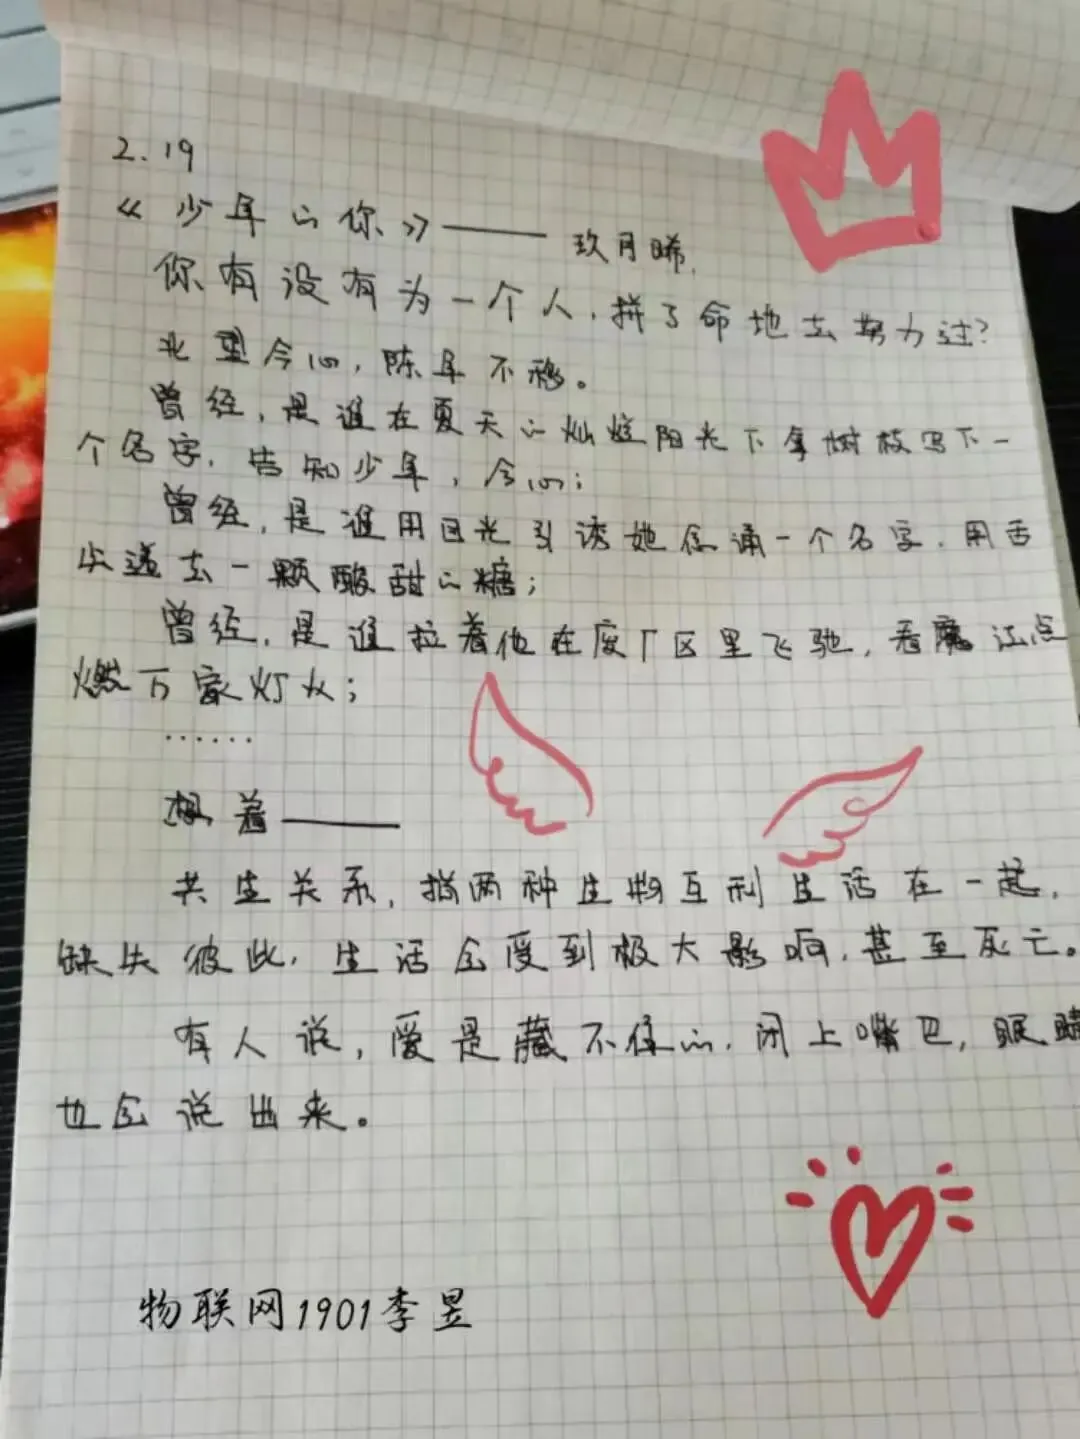 2.19
《少年的你》——玖月晞
你有没有为一个人,拼了命地去努力过?
北望今心,陈年不移。
曾经,是谁在夏天的灿烂阳光下拿树枝写下一
个名字,告知少年,念心;
曾经,是谁用目光引诱她信诵一个名字,用舌
尖送去一颗酸甜的糖;
曾经,是谁拉着他在废厂区里飞驰,看魔法点
燃万家灯火;
......
想着——
共生关系,指两种生物互利生活在一起,
缺失彼此,生活会受到极大影响,甚至死亡。
有人说,爱是藏不住的,闭上嘴巴,眼睛
也会说出来。
物联网1901李昱